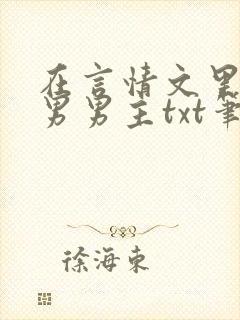 在言情文里
男男主txt笔
徐海东